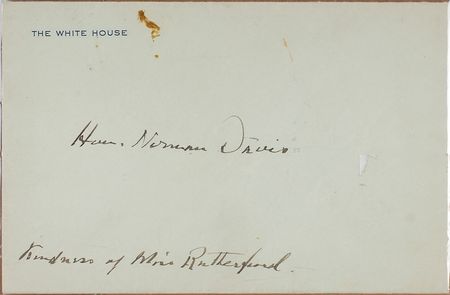 THE WHITE HOUSE
Hon. Norman Davis
Kindness of Miss Rutherford.